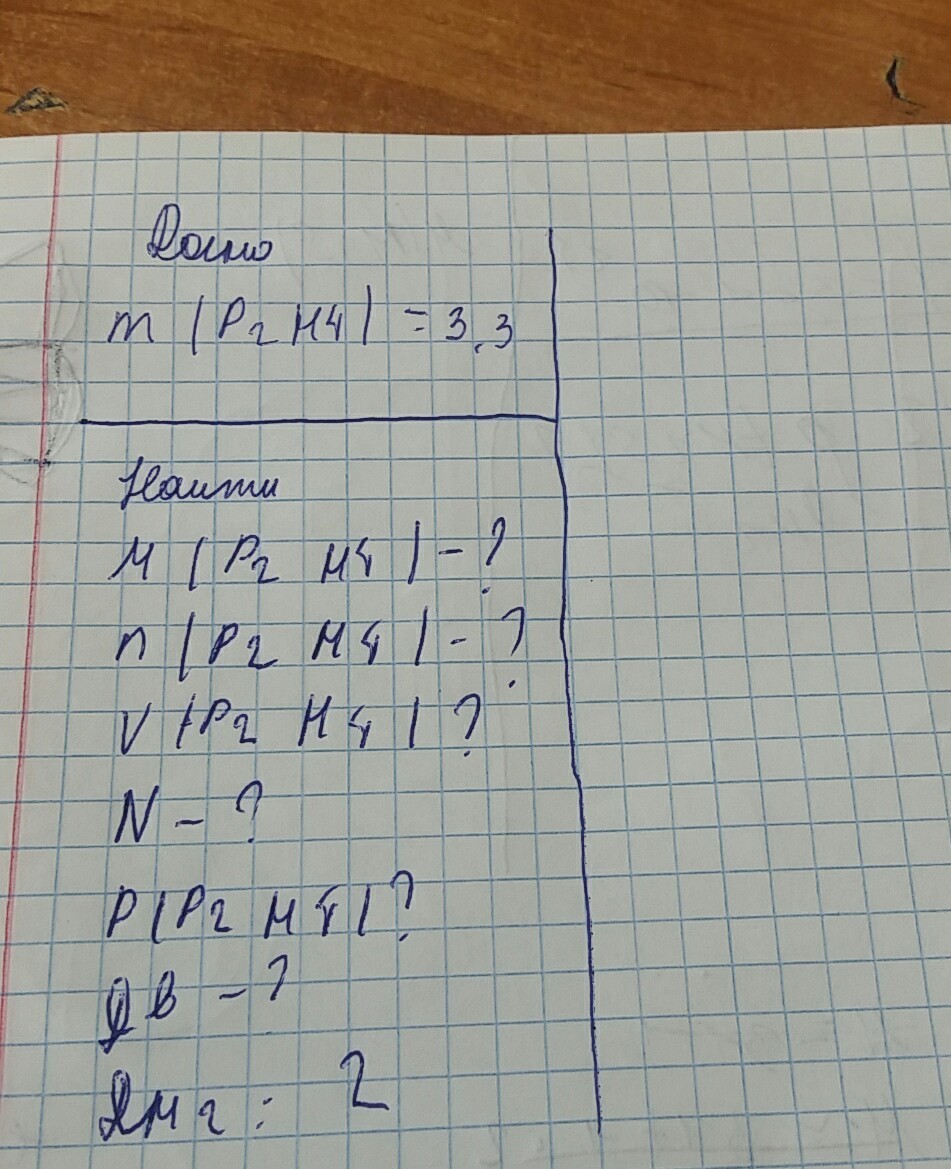 Дано
m (P2H4) = 3,3
Найти
M (P2 H4) - ?
n (P2 H4) - ?
V (P2 H4) ?
N - ?
P (P2 H4) ?
Дв - ?
ДH2 : 2